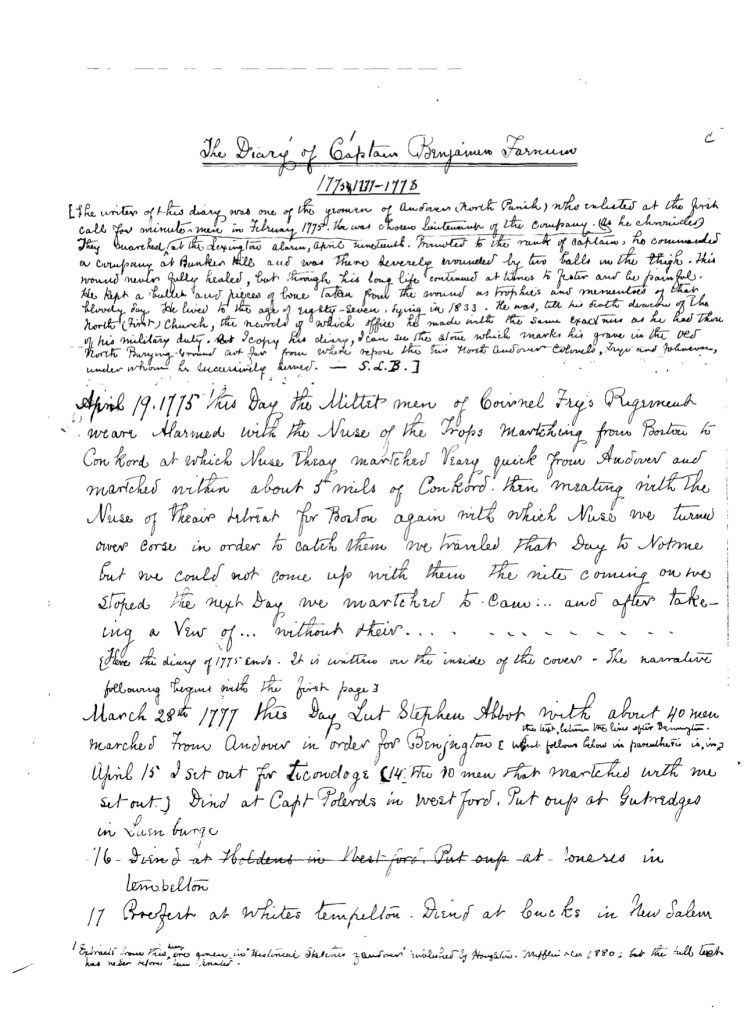 The Diary of Captain Benjamin Farnum
1775 & 1777-1778
[The writer of this diary was one of the yeomen of Andover (North Parish) who enlisted at the first
call for minute-men in February 1775. He was chosen lieutenant of the company. (As he chronicles)
They marched at the Lexington alarm, April nineteenth. Promoted to the rank of captain, he commanded
a company at Bunker Hill and was there severely wounded by two balls in the thigh. This
wound never fully healed, but through his long life continued at times to fester and be painful.
He kept a bullet and pieces of bone taken from the wound as trophies and mementoes of that
bloody day. He lived to the age of eighty-seven, dying in 1833. He was, till his death deacon of the
North (First) Church, the records of which office he made with the same exactness as he had those
of his military duty. As I copy his diary, I can see the stone which marks his grave in the Old
North Burying-Ground not far from where repose the two North Andover Colonels, Frye and Johnson,
under whom he successively served. — S.L.B.]
April 19. 1775 this Day the Mittit men of Coirnel Frys Rigement
weare Alarmed with the Nuse of the Trops Martching from Boston to
Conkord at which Nuse Thay martched Veary quick from Andover and
martched within about 5 mils of Conkord. then meating with the
Nuse of theair retreat for Boston again with which Nuse we turned
ower corse in order to catch them we traveled that Day to Notme
but we could not come up with them the nite coming on we
stoped the next Day we martched to Cam... and after take-
ing a Vew of ... without their....
[Here the diary of 1775 ends. It is written on the inside of the cover - The narrative
following begins with the first page]
March 28th 1777 this Day Lut Stephen Abbot with about 40 men
marched from Andover in order for Benington [what follows below in parenthesis is, in
the text, between the lines after Bennington.]
April 15 I set out for Ticondoge (14 the 10 men that martched with me
set out.) Dind at Capt Polerds in westford. Put oup at Gutredges
in Luenburge
16 - Diend at Holdens in Westford. Put oup at Joneses in
tempelton
17 Brecfest at Whites tempelton. Diend at Cucks in New Salem
1 Extracts from this, were given in "Historical Sketches of Andover" published by Houghton, Mifflin & Co 1880; but the full text
has never before been printed.